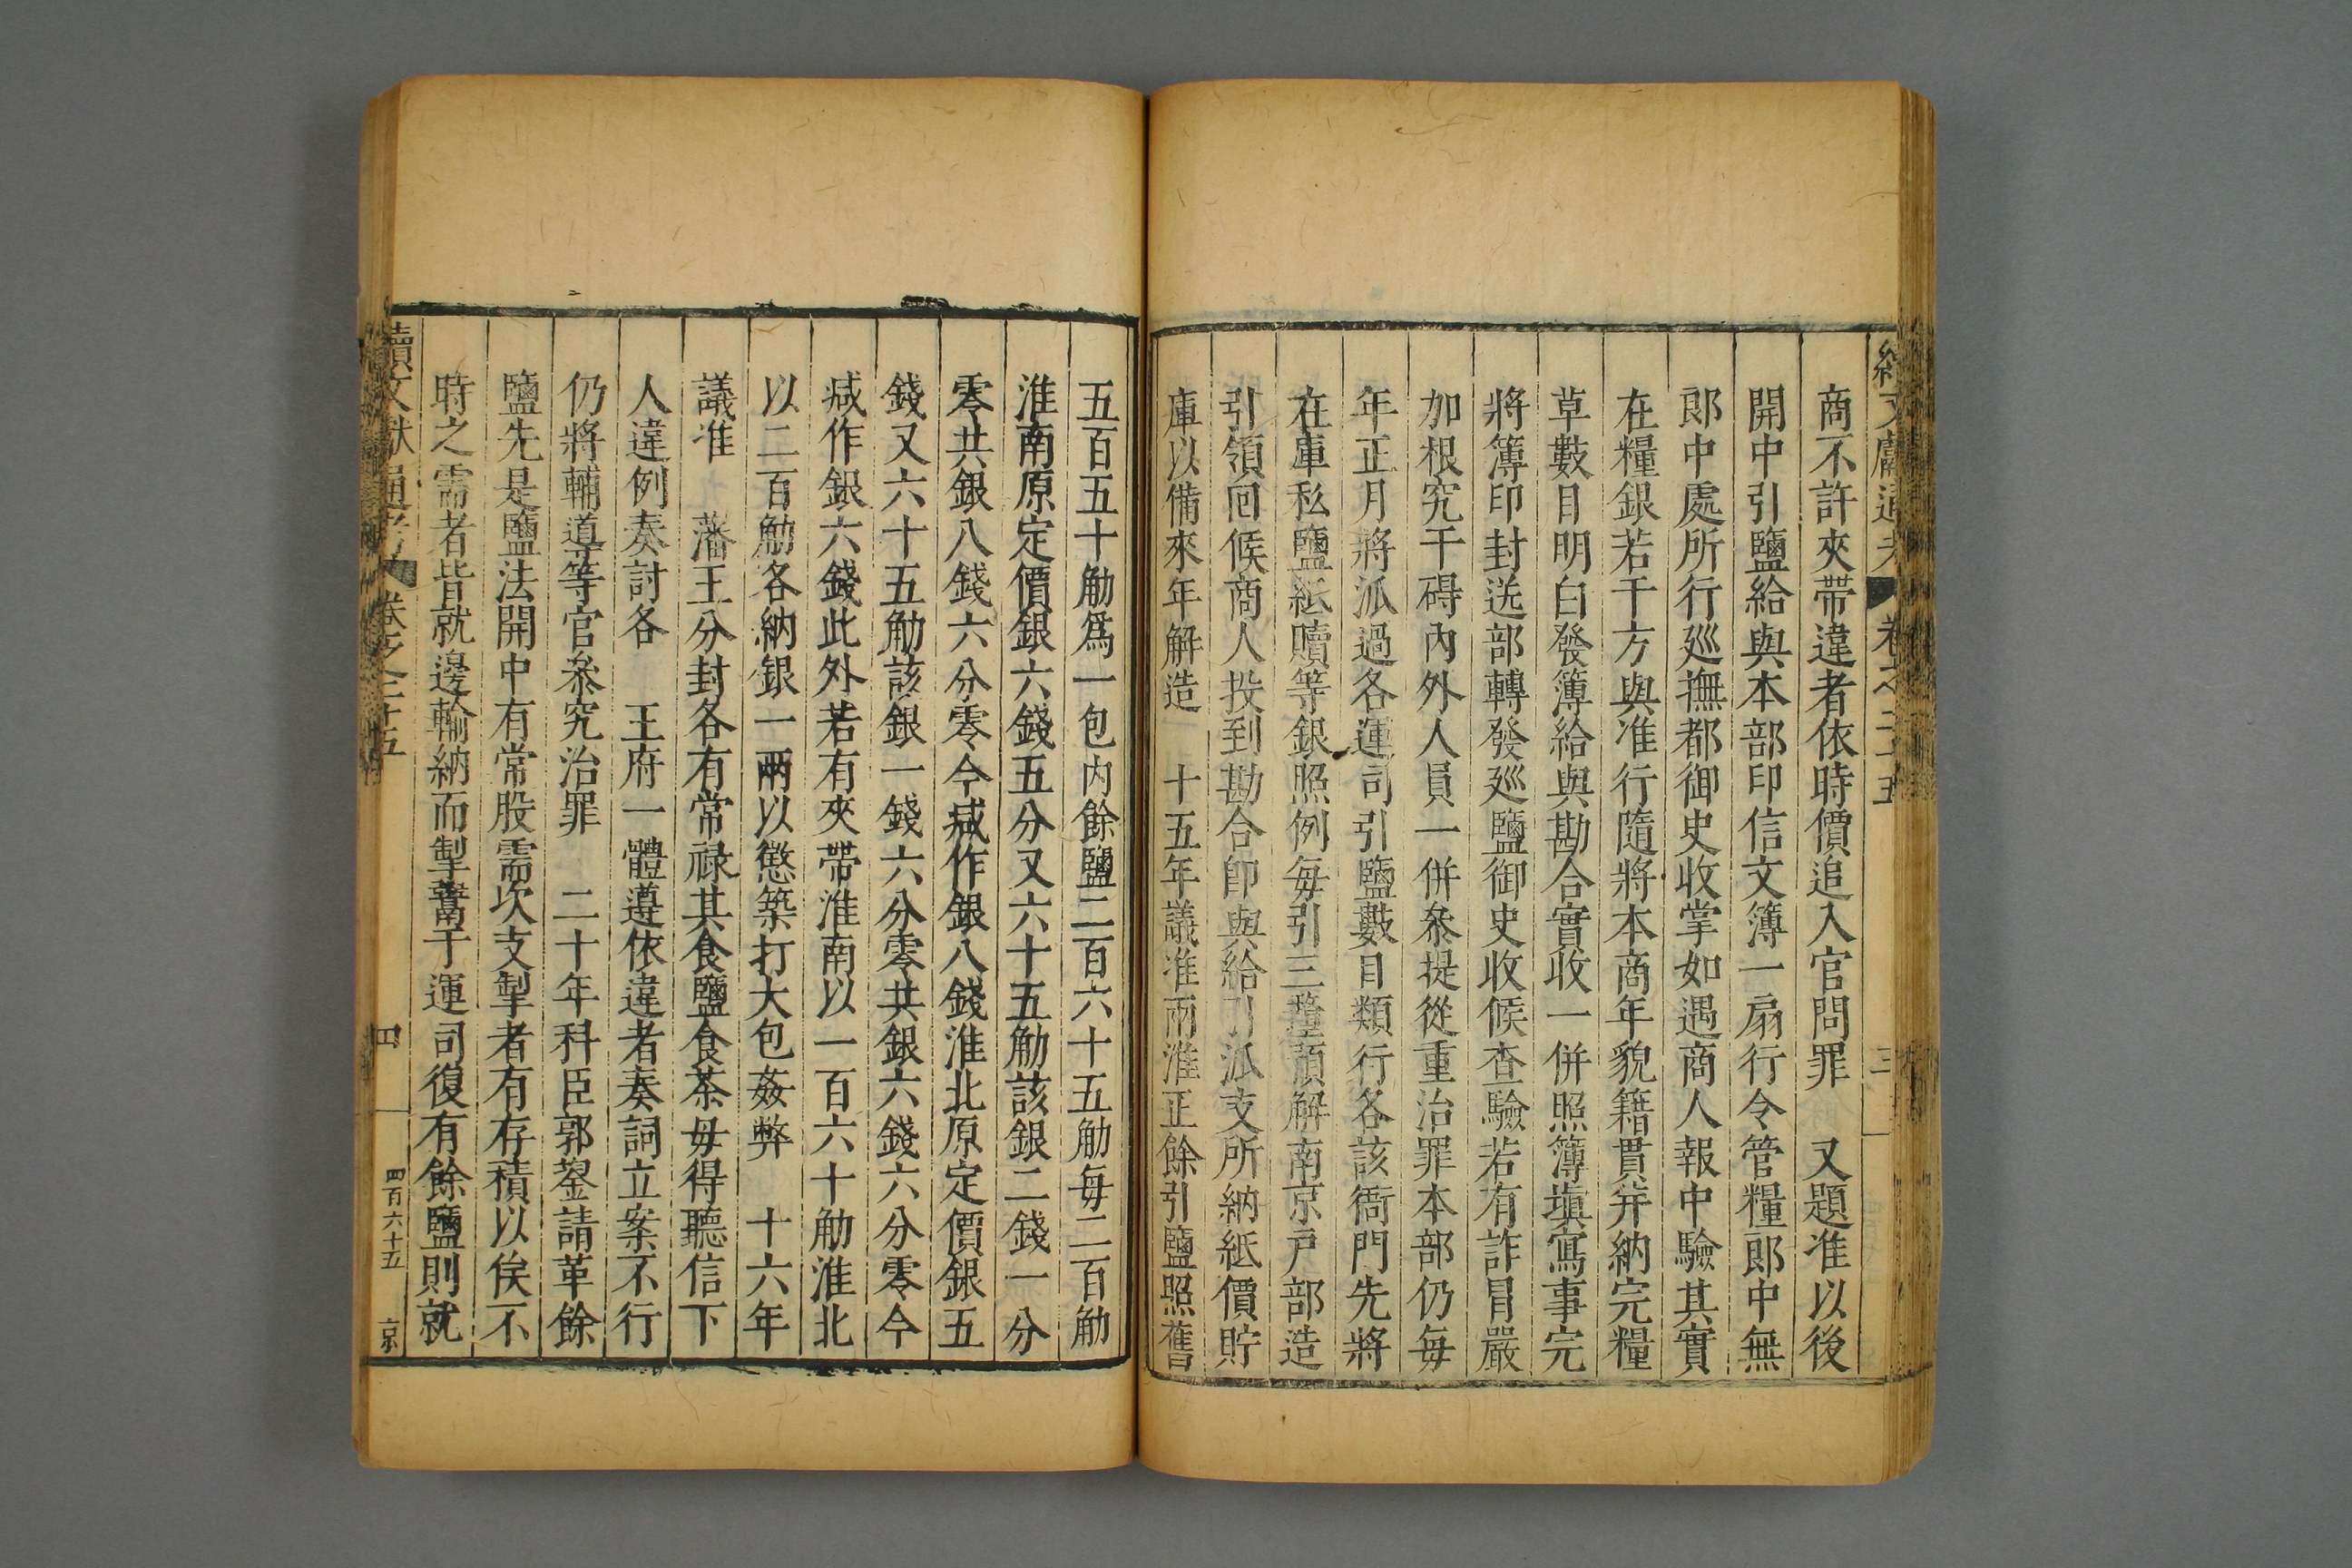 續文獻通考 卷之二十五 三
商不許夾帶違者依時價追入官問罪 又題准以後
開中引鹽給與本部印信文簿一扇行令管糧郎中無
郎中處所行廵撫都御史收掌如遇商人報中驗其實
在糧銀若干方與准行隨將本商年貌籍貫并納完糧
草數目明白發簿給與勘合實收一併照簿填寫事完
將簿印封送部轉發廵鹽御史收候查驗若有詐冒嚴
加根究干碍內外人員一併叅提從重治罪本部仍每
年正月將派過各運司引鹽數目類行各該衙門先將
在庫私鹽紙贖等銀照例每引三釐預解南京戶部造
引領回候商人投到勘合即與給引派支所納紙價貯
庫以備來年解造 十五年議准兩淮正餘引鹽照舊
五百五十觔爲一包內餘鹽二百六十五觔每二百觔
淮南原定價銀六錢五分又六十五觔該銀二錢一分
零共銀八錢六分零今減作銀八錢淮北原定價銀五
錢又六十五觔該銀一錢六分零共銀六錢六分零今
減作銀六錢此外若有夾帶淮南以一百六十觔淮北
以二百觔各納銀一兩以懲築打大包姦弊 十六年
議准 藩王分封各有常祿其食鹽食茶毋得聽信下
人違例奏討各 王府一體遵依違者奏詞立案不行
仍將輔道等官叅究治罪 二十年科臣郭鋆請革餘
鹽先是鹽法開中有常股需次支掣者有存積以俟不
時之需者皆就邊輸納而掣鬻于運司復有餘鹽則就
續文獻通考 卷之二十五 四 四百六十五 京